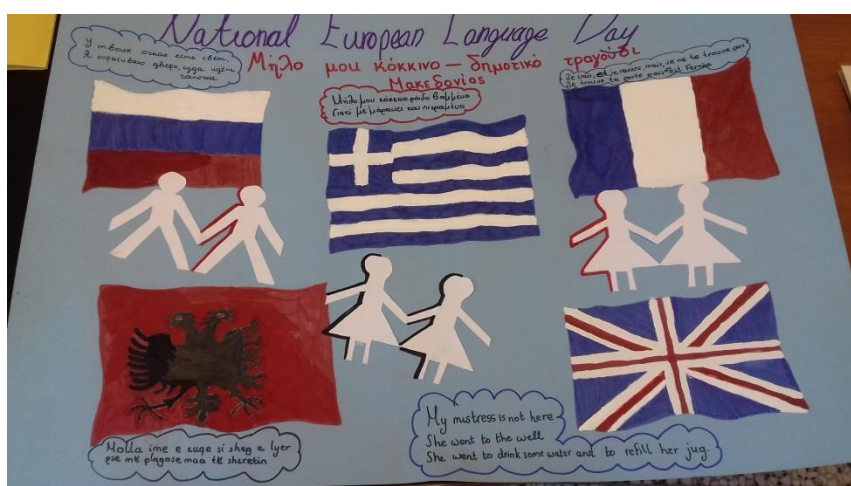 National European Language Day
Μήλο μου κόκκινο – δημοτικό τραγούδι
Μακεδονίας
У твоих окнах есть свет.
Я спрашиваю дверь, куда идёт
Μήλο μου κόκκινο ρόιδο βαμμένο
Γιατί με μάρανες τον πικραμένο
Je vais, et je reviens, mais, je ne te trouve pas
Je trouve ta porte
Molla ime e kuqe si sheg e lyer
pse më plagose mua të shkretin
My mistress is not here
She went to the well
She went to drink some water and to refill her jug.